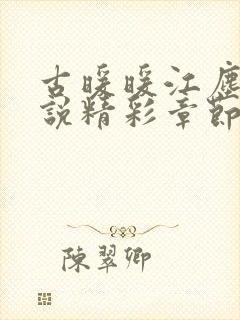 古暖暖江塵
說精彩章節
陳翠卿